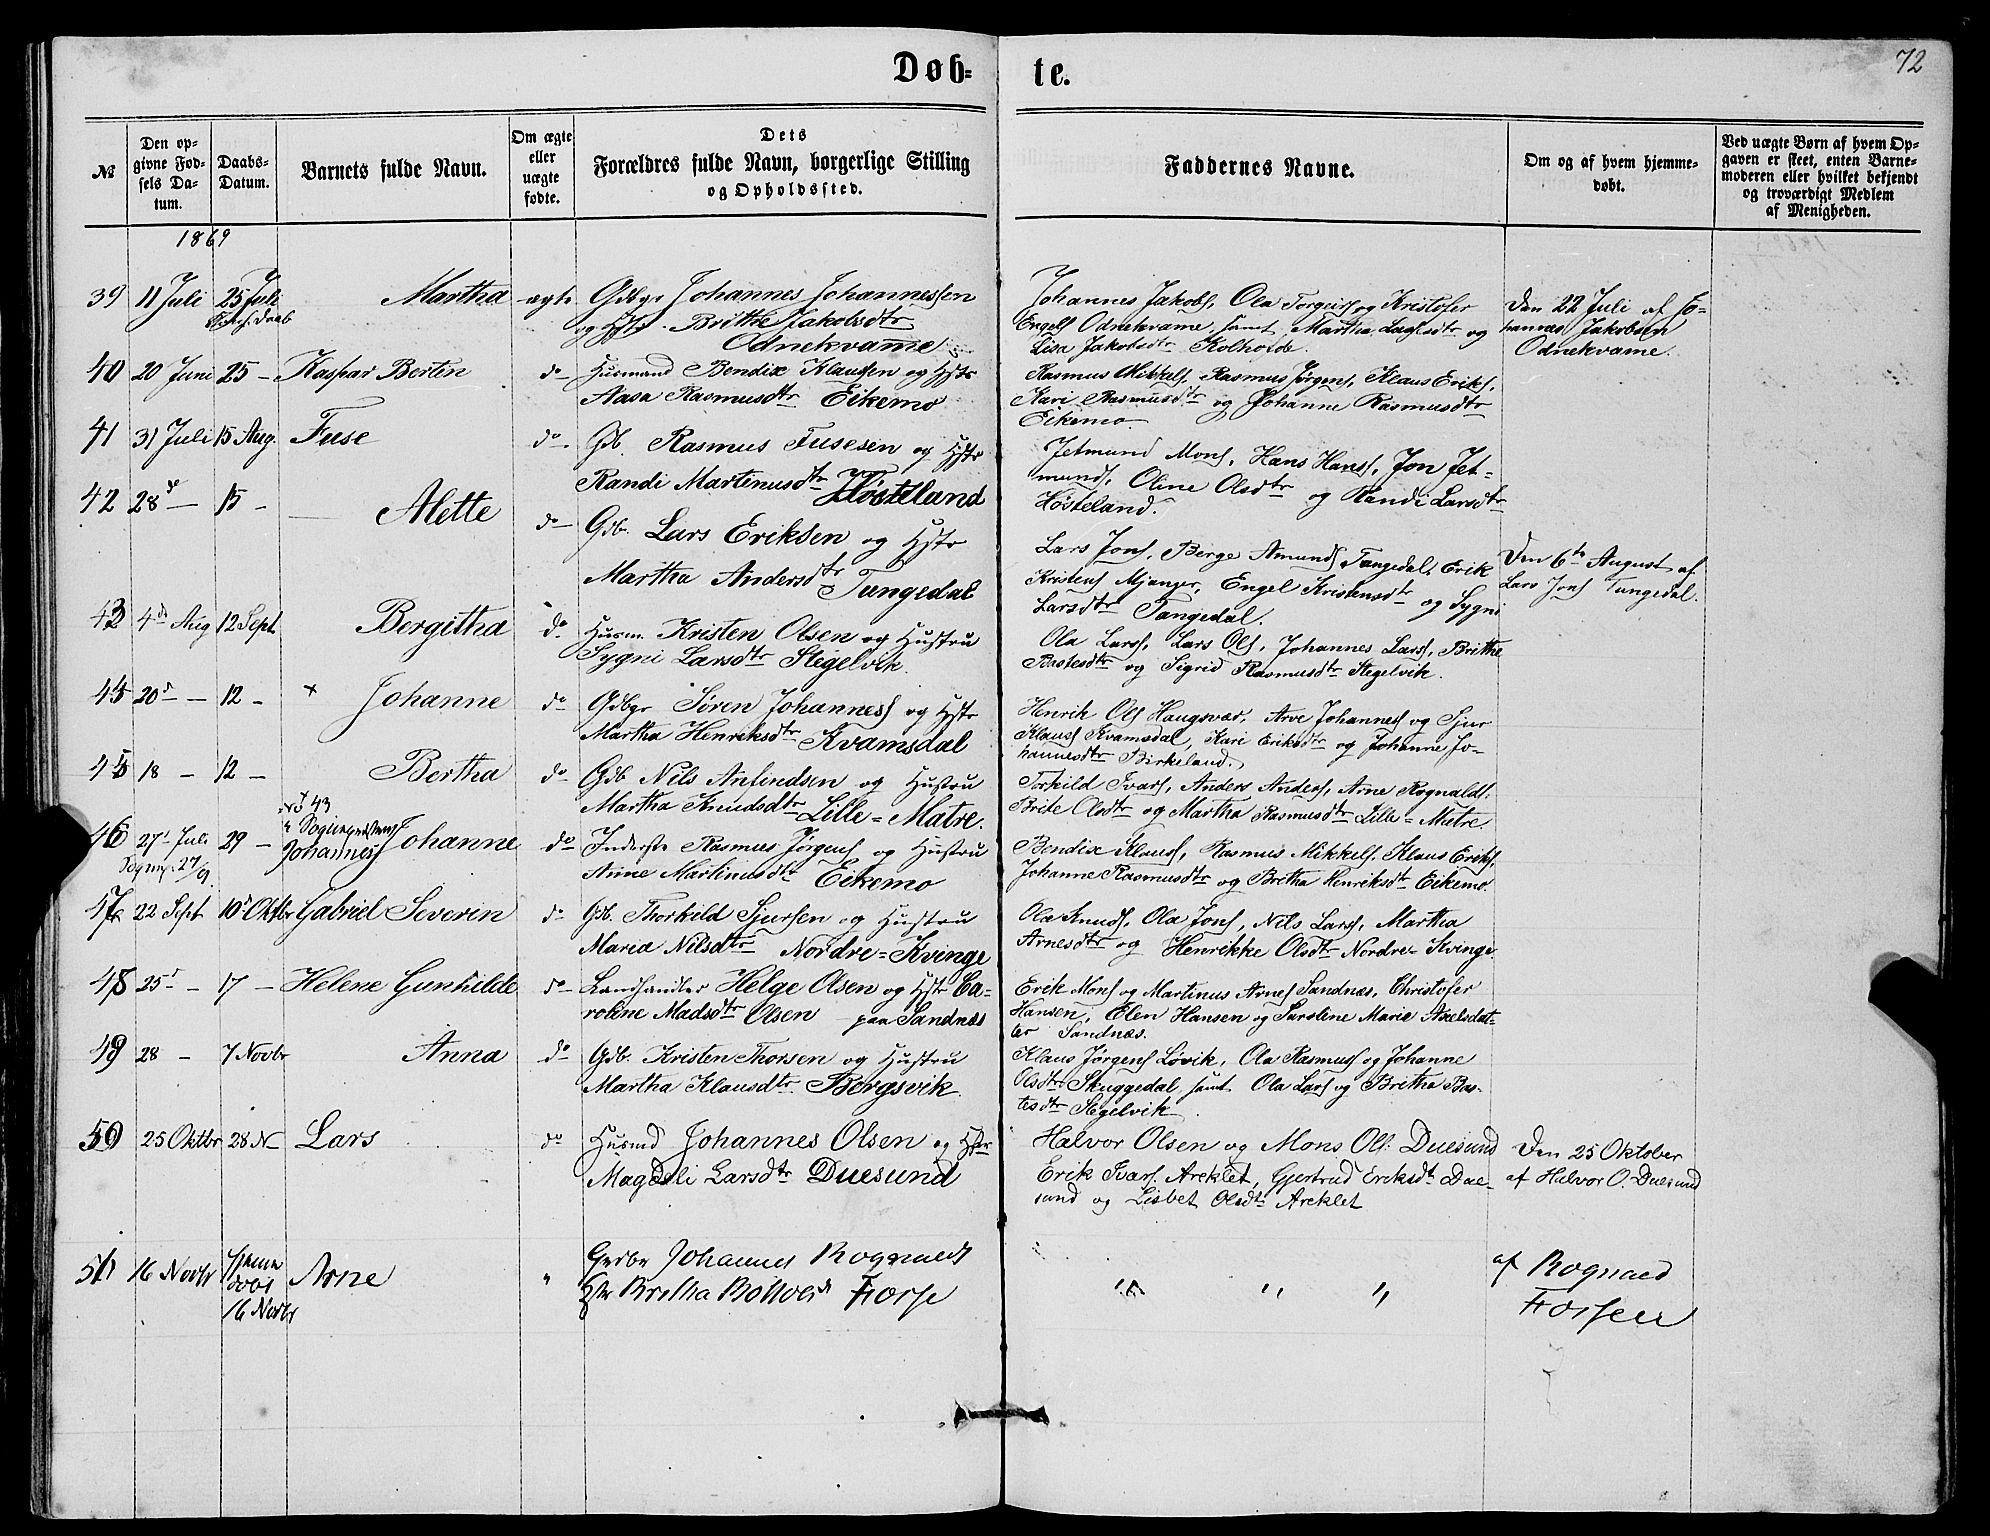 72
Døb= te.
№
Den op-
givne Fød-
sels Da-
tum.
Daabs-
Datum.
Barnets fulde Navn.
Om ægte
eller
uægte
fødte.
Dets
Forældres fulde Navn, borgerlige Stilling
og Opholdssted.
Faddernes Navne.
Om og af hvem hjemme-
døbt.
Ved uægte Børn af hvem Op-
gaven er skeet, enten Barne-
moderen eller hvilket bekjendt
og troværdigt Medlem
af Menigheden.
1869
39 11 Juli 25 Juli Martha ægte Gdbgr Johannes Johannessen
og Hstr. Brithe Jakobsdtr
Odnekvame
Johannes Jakobs, Ola Torgeirs og Kristofer
Engels Odnekvame, samt Martha Larsdtr og
Lisa Jakobsdtr Kolholde.
Den 22 Juli af Jo-
hannes Jakobsen
Odnekvame.
40 20 Juni 25 — Kaspar Bertin do Husmand Bendix Klausen og Hstr
Aasa Rasmusdtr Eikemo
Rasmus Mikkels, Rasmus Jørgens, Klaus Eriks,
Kari Rasmusdtr og Johanne Rasmusdtr
Eikemo.
41 31 Juli 15 Aug. Fuse do. Gb. Rasmus Fusesen og Hstr
Randi Martinusdtr Høsteland
Jetmund Mons, Hans Hans, Jon Jet-
munds, Oline Olsdtr og Randi Larsdtr
Høsteland.
42 28de — 15 — Alette do Gdb. Lars Eriksen og Hstr
Martha Andersdtr Tungedal
Lars Jons, Berge Amunds Tangedal, Erik
Kristens Mjanger, Engel Kristensdtr og Sygni
Larsdtr Tangedal.
Den 6te August af
Lars Jons Tungedal.
43 4de Aug 12 Sept Bergitha do Husm. Kristen Olsen og Hustru
Sygni Larsdtr Stegelvik.
Ola Lars, Lars Ols, Johannes Lars, Brithe
Bastesdtr og Sigrid Rasmusdtr Stegelvik.
45 20d — 12 — + Johanne do Gdbgr Søren Johannes og Hstr
Martha Henriksdtr Kvamsdal
Henrik Ols Haugsvær, Arve Johannes og Sjur
Klaus Kvamsdal, Kari Eriksdtr og Johanne Jo-
hannesdtr Birkeland.
45 18 — 12 — Bertha do Gdb Nils Anfindsen og Hustru
Martha Knudsdtr Lille=Matre.
Torkild Ivars, Anders Anders, Arne Rognalds,
Brite Olsdtr og Martha Rasmusdtr Lille=Matre.
No 43
46 27d Juli 29 — Johannes Johanne do Inderste Rasmus Jørgens og Hustru
Anne Martinusdtr Eikemo
Bendix Klaus, Rasmus Mikkels, Klaus Eriks,
Johanne Rasmusdtr og Bretha Henriksdtr Eikemo.
47 22 Sept 10d Oktbr Gabriel Severin do Gdb. Thorkild Sjursen og Hustru
Maria Nilsdtr Nordre=Kvinge
Ola Knuds, Ola Jons, Nils Lars, Martha
Arnesdtr og Henrikke Olsdtr Nordre=Kvinge.
48 25d — 17 — Helene Gunhilde do Landhandler Helge Olsen og Hstr Ca-
roline Madsdtr Olsen paa Sandnæs
Erik Mons og Martinus Arnes Sandnæs, Christofer
Hansen, Elen Hansen og Karoline Marie Axelsdat-
ter Sandnæs.
49 28 — 7 Novbr Anna do Gdb. Kristen Thorsen og Hustru
Martha Klausdtr Bergsvik.
Klaus Jørgens Løvik, Ola Rasmus og Johanne
Olsdtr Skuggedal, samt Ola Lars og Britha Bas-
tesdtr Stegelvik
50 25 Oktbr 28 N — Lars do Husmd Johannes Olsen og Hstr
Magdeli Larsdtr Duesund
Halvor Olsen og Mons Ols: Duesund
Erik Ivars. Areklet, Gjertrud Eriksdtr Due-
sund og Lisbet Olsdtr Areklet
Den 25 Oktober
af Halvor O. Duesund
51 16 Novbr Hjemme
døbt
16 Novbr
Arne " Grdbr Johannes Rognalds
Hstr Britha Bottolfsd Forse
" " "
af Rognald
Forsen